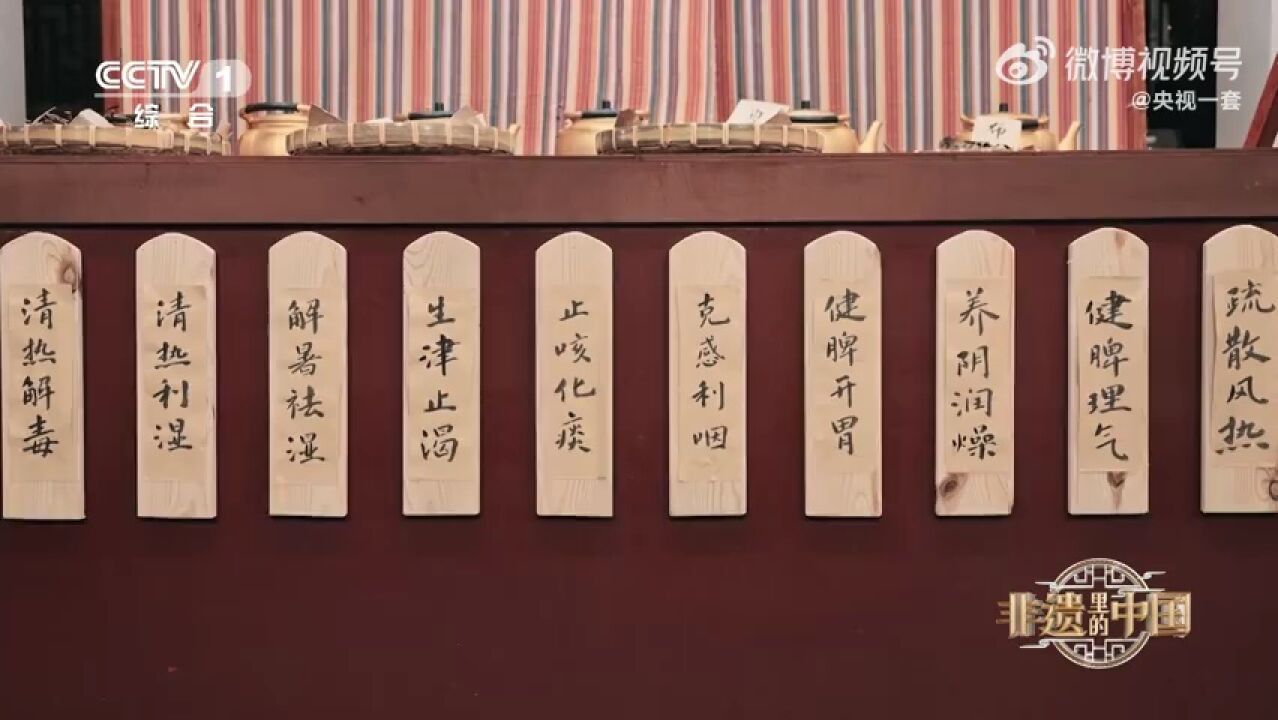 CCTV 1
综合
微博视频号
@央视一套
清热解毒
清热利湿
解暑祛湿
生津止渴
止咳化痰
克感利咽
健脾开胃
养阴润燥
健脾理气
疏散风热
非遗里的中国